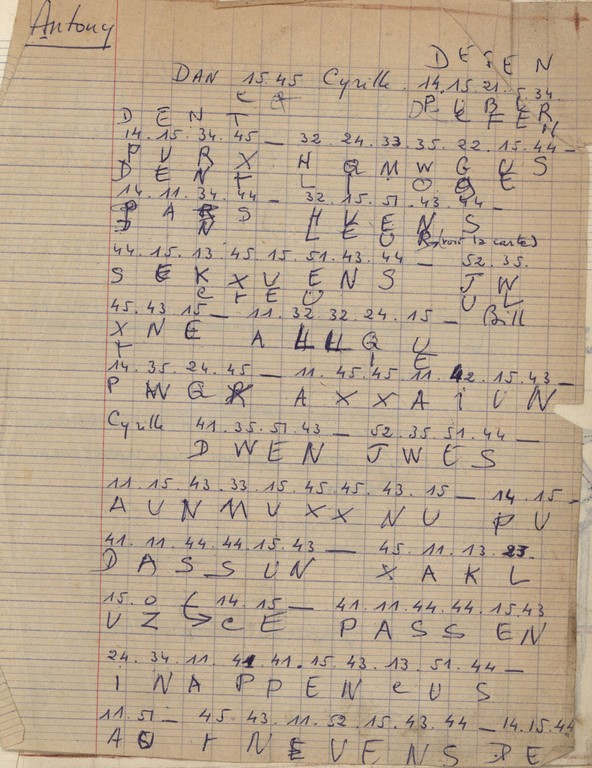 Antony
D E F E N
DAN 15.45 Cyrille . 14.15.21.15.34.
D E N T
14.15.34.45 — 32.24.33.35.22.15.44 —
P U R X H Q M W G U S
D E N T L I O G E
14.11.34.44 — 32.15.51.43.44 —
P A R S H U E N S
D N L E U R (voir la carte)
44.15.13.45.15.51.43.44 — 52.35.
S E K X U E N S J W
C T E U U L
45.43.15 — 11.32.32.24.15 — Bill
X N E A H H Q U
T L L I E
14.35.24.45 — 11.45.45.11.42.15.43 —
P W Q X A X X A I U N
Cyrille 41.35.51.43 — 52.35.51.44 —
D W E N J W E S
11.15.43.33.15.45.45.43.15 — 14.15 —
A U N M U X X N U P U
41.11.44.44.15.43 — 45.11.13.23.
D A S S U N X A K L
15.0 ( 14.15 — 41.11.44.44.15.43
U Z C E P A S S E N
24.34.11.41.41.15.43.13.51.44 —
I N A P P E N C U S
11.51 — 45.43.11.52.15.43.44 — 14.15.44
A U T N E V E N S D E